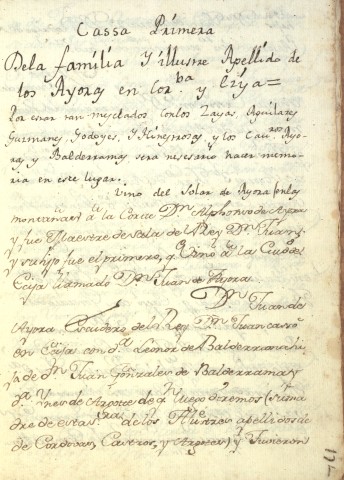 Cassa Primera
De la familia Y illustre Apellido de
los Ayoras en Cor.ba y Ezija=
Por estar tan mesclados con los Zayas, Aguilares
Guzmanes, Godoyes, Y Hinestrosas y los Cau.ros Ayo-
ras y Balderramas sera nesesario hacer memo-
ria en este lugar.
Vino del Solar de Ayora (en las
montañas) a la Corte D.n Alphonso de Ayora
y fue Maestre de Sala de el Rey D.n Juan
y su hijo fue el primero, q. vino a la Ciu.d de
Ezija llamado D.n Juan de Ayora.
D.n Juan de
Ayora Escudero de el Rey D.n Juan casso
en Ezija con D.a Leonor de Balderrama hi-
ja de D.n Juan Gonzales de Balderrama y
D.a Ynes de Arpote de q. luego diremos (su ma
dre de esta s.ra de los Illustres apellidos de
de Cordovas, Caveros, y ) y Tuvieron